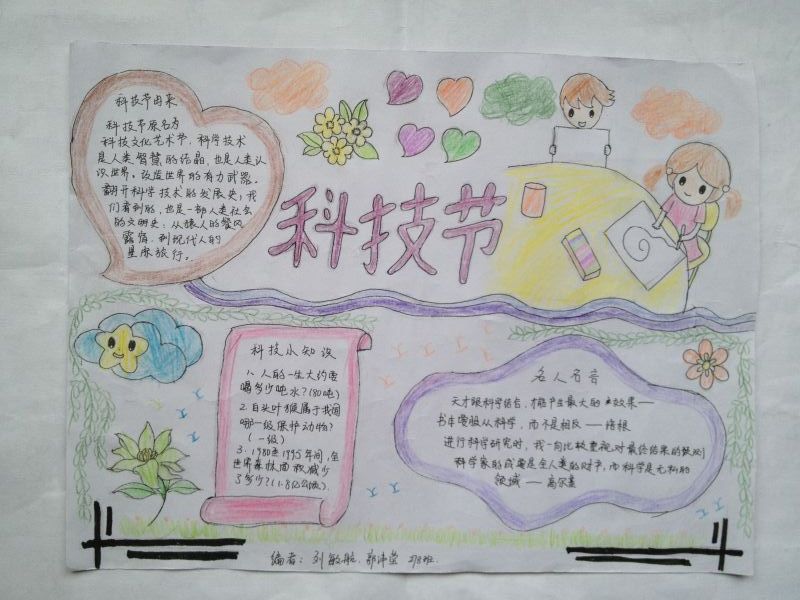 科技节由来
科技节原名为
科技文化艺术节，科学技术
是人类智慧的结晶，也是人类认
识世界、改造世界的有力武器。
翻开科学技术的发展史，我
们看到的，也是一部人类社会
的文明史：从猿人的餐风
露宿，到现代人的
星际旅行。
科技节
科技小知识
1、人的一生大约要
喝多少吨水？(80吨)
2.白头叶猴属于我国
哪一级保护动物？
(一级)
3.1980至1995年间，全
世界森林面积减少
了多少？(1.8亿公顷).
名人名言
天才跟科学结合，才能产生最大的效果——
书本要服从科学，而不是相反——培根
进行科学研究时，我一向比较重视对最终结果的
科学家的成果是全人类的财产，而科学是无私的
领域——高尔基
编者：刘敏航.